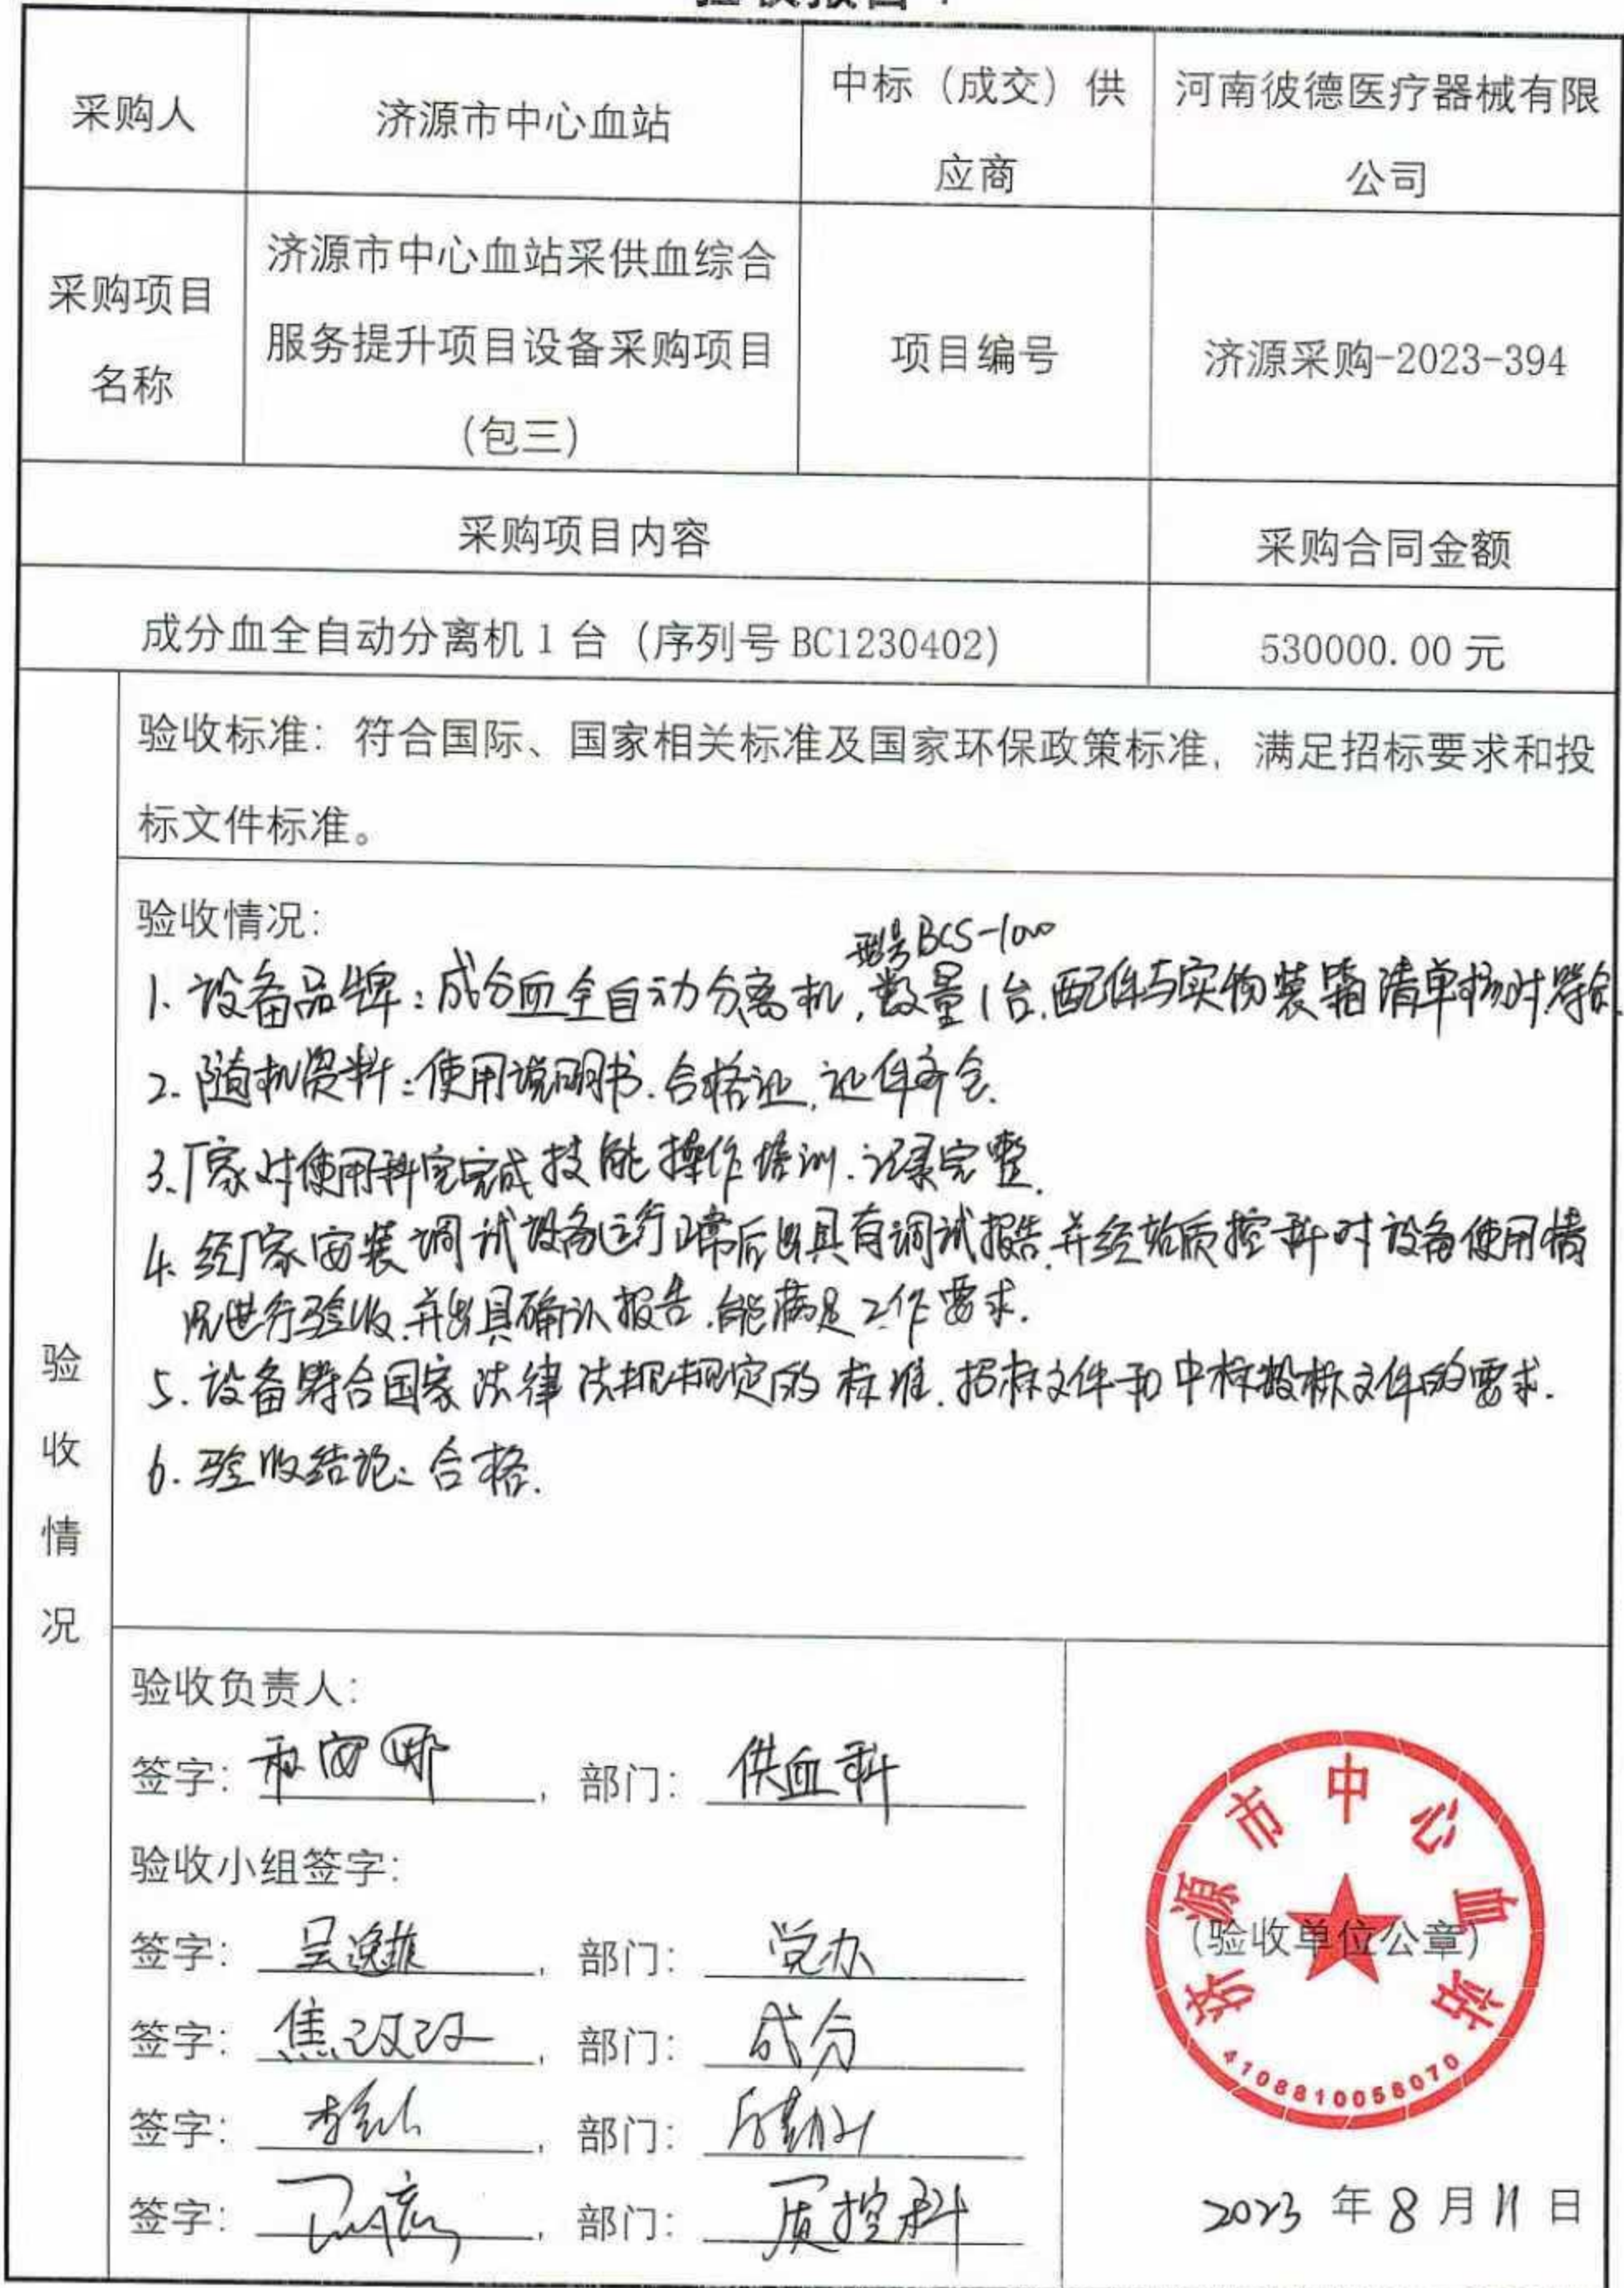 验收报告
采购人
济源市中心血站
中标（成交）供
应商
河南彼德医疗器械有限
公司
采购项目
名称
济源市中心血站采供血综合
服务提升项目设备采购项目
（包三）
项目编号
济源采购-2023-394
采购项目内容
采购合同金额
成分血全自动分离机1台（序列号BC1230402）
530000.00元
验收情况
验收标准：符合国际、国家相关标准及国家环保政策标准，满足招标要求和投
标文件标准。
验收情况：
型号BCS-1000
1. 设备品牌：成分血全自动分离机，数量1台.配件与实物装箱清单核对符合.
2. 随机资料：使用说明书.合格证,证件齐全.
3.厂家对使用科室完成技能操作培训.记录完整.
4. 经厂家安装调试设备运行正常后出具有调试报告.并经站质控科对设备使用情
况进行验收.并出具确认报告.能满足工作要求.
5. 设备符合国家法律法规规定的标准.招标文件和中标投标文件的要求.
6. 验收结论：合格.
验收负责人：
签字： ，部门：供血科
验收小组签字：
签字： ，部门：党办
签字：焦汉汉，部门：成分
签字： ，部门：
签字： ，部门：质控科
济源市中心血站
（验收单位公章）
4108810058070
2023年8月11日